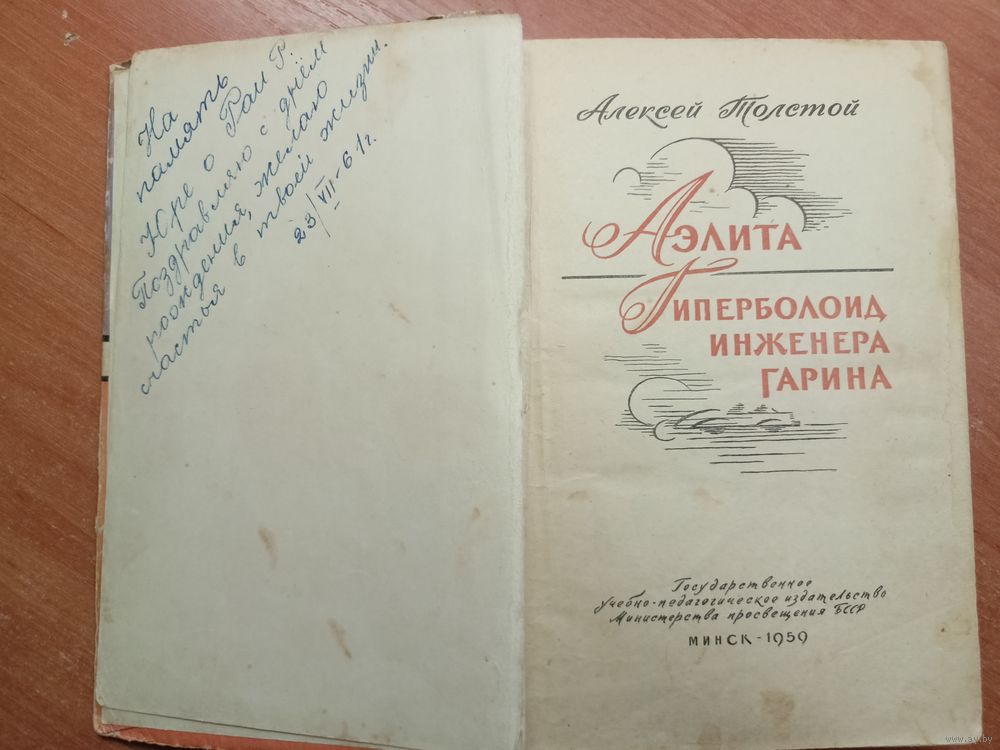 На
память
Юре о Раи Г.
Поздравляю с днём
рождения, желаю
счастья в твоей жизни.
23/VII-61г.
Алексей Толстой
Аэлита
Гиперболоид
инженера
Гарина
Государственное
учебно-педагогическое издательство
Министерства просвещения БССР
МИНСК - 1959
www.ay.by